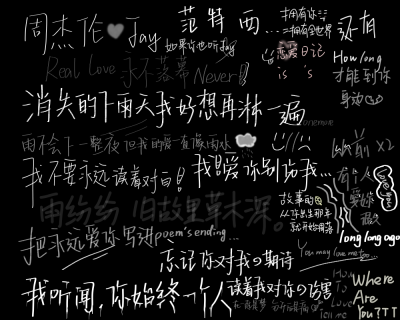 周杰伦 Jay
范特西
拥有你
拥有全世界
还有
如果你也听Jay
恋爱日记
is s
How long
才能到你
身边
Real Love
永不落幕
Never!
消失的下雨天我好想再淋一遍
雨不会下一整夜 但我的爱一直像雨水
以前 x2
我不要永远读着对白!
我爱你别伤我...
有个人
爱你
很久
故事的
从你出生那年
就开始
雨纷纷 旧故里草木深。
把永远爱你写进poem's ending...
long long ago
You may love me to...
忘记你对我の期待
我听闻,你始终一个人
读着我对你の伤害
How
To
Love
Where
Are
You?TT